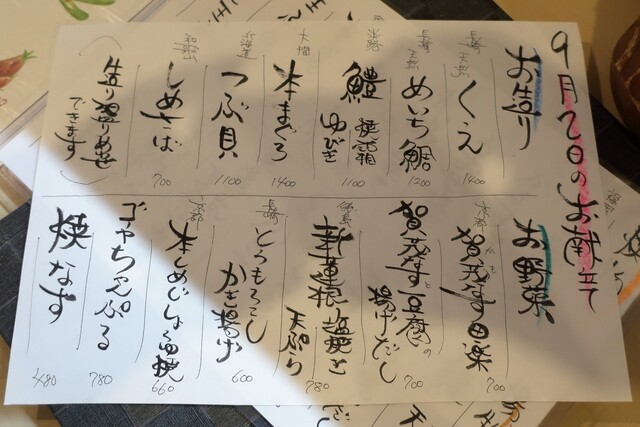 9月20のお献立て
お造り
長崎
くえ
1400
長崎
めいち鯛
1200
淡路
鱧 焼霜 ゆびき
1100
大間
本まぐろ
1400
北海道
つぶ貝
1100
和歌山
しめさば
700
(造り盛り合せできます)
お野菜
京都
賀茂なす田楽
700
賀茂なすと豆腐の揚げだし
700
徳島
新蓮根 塩焼と天ぷら
780
長崎
とうもろこしかき揚げ
600
京都
本しめじしょうゆ焼
660
ゴーヤちゃんぷる
780
焼なす
480